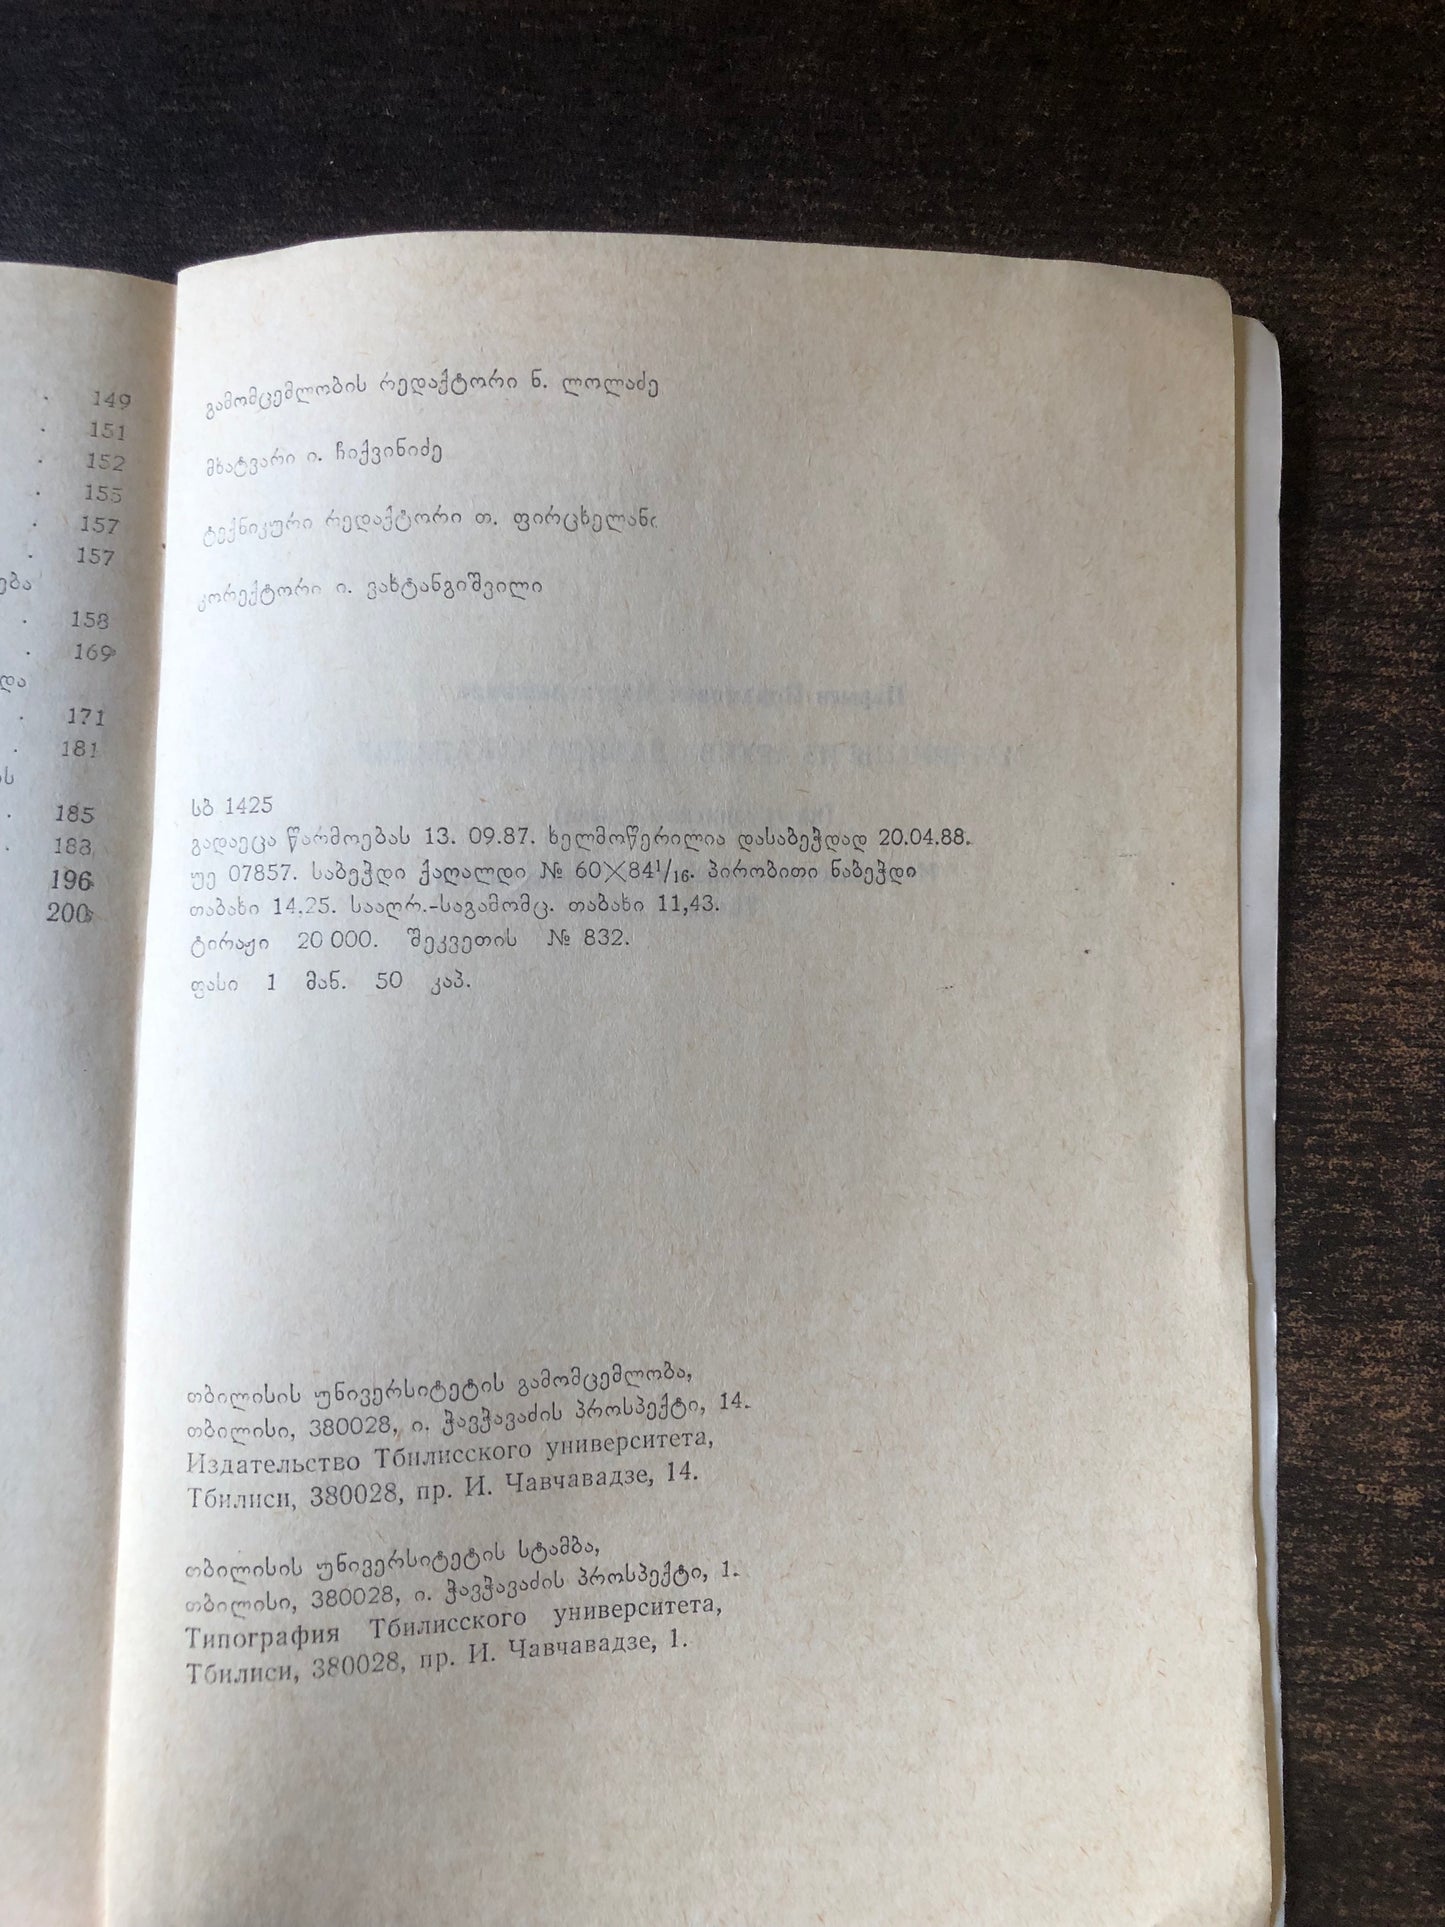 149
151
152
155
157
157
158
169
171
181
185
183
196
200
გამომცემლობის რედაქტორი ნ. ლოლაძე
მხატვარი ი. ჩიქვინიძე
ტექნიკური რედაქტორი თ. ფირცხელანი
კორექტორი ი. ვახტანგიშვილი
სბ 1425
გადაეცა წარმოებას 13. 09.87. ხელმოწერილია დასაბეჭდად 20.04.88.
უე 07857. საბეჭდი ქაღალდი № 60×84¹/₁₆. პირობითი ნაბეჭდი
თაბახი 14.25. სააღრ.-საგამომც. თაბახი 11,43.
ტირაჟი 20 000. შეკვეთის № 832.
ფასი 1 მან. 50 კაპ.
თბილისის უნივერსიტეტის გამომცემლობა,
თბილისი, 380028, ი. ჭავჭავაძის პროსპექტი, 14.
Издательство Тбилисского университета,
Тбилиси, 380028, пр. И. Чавчавадзе, 14.
თბილისის უნივერსიტეტის სტამბა,
თბილისი, 380028, ი. ჭავჭავაძის პროსპექტი, 1.
Типография Тбилисского университета,
Тбилиси, 380028, пр. И. Чавчавадзе, 1.